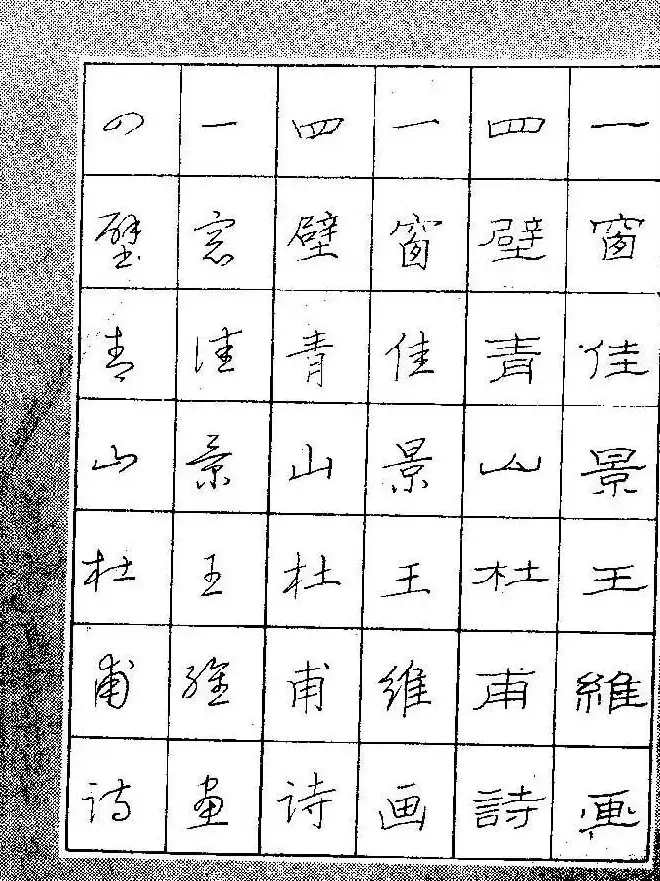 一窗佳景王維画
四壁青山杜甫詩
一窗佳景王维画
四壁青山杜甫诗
一窓佳景王维画
四壁青山杜甫诗